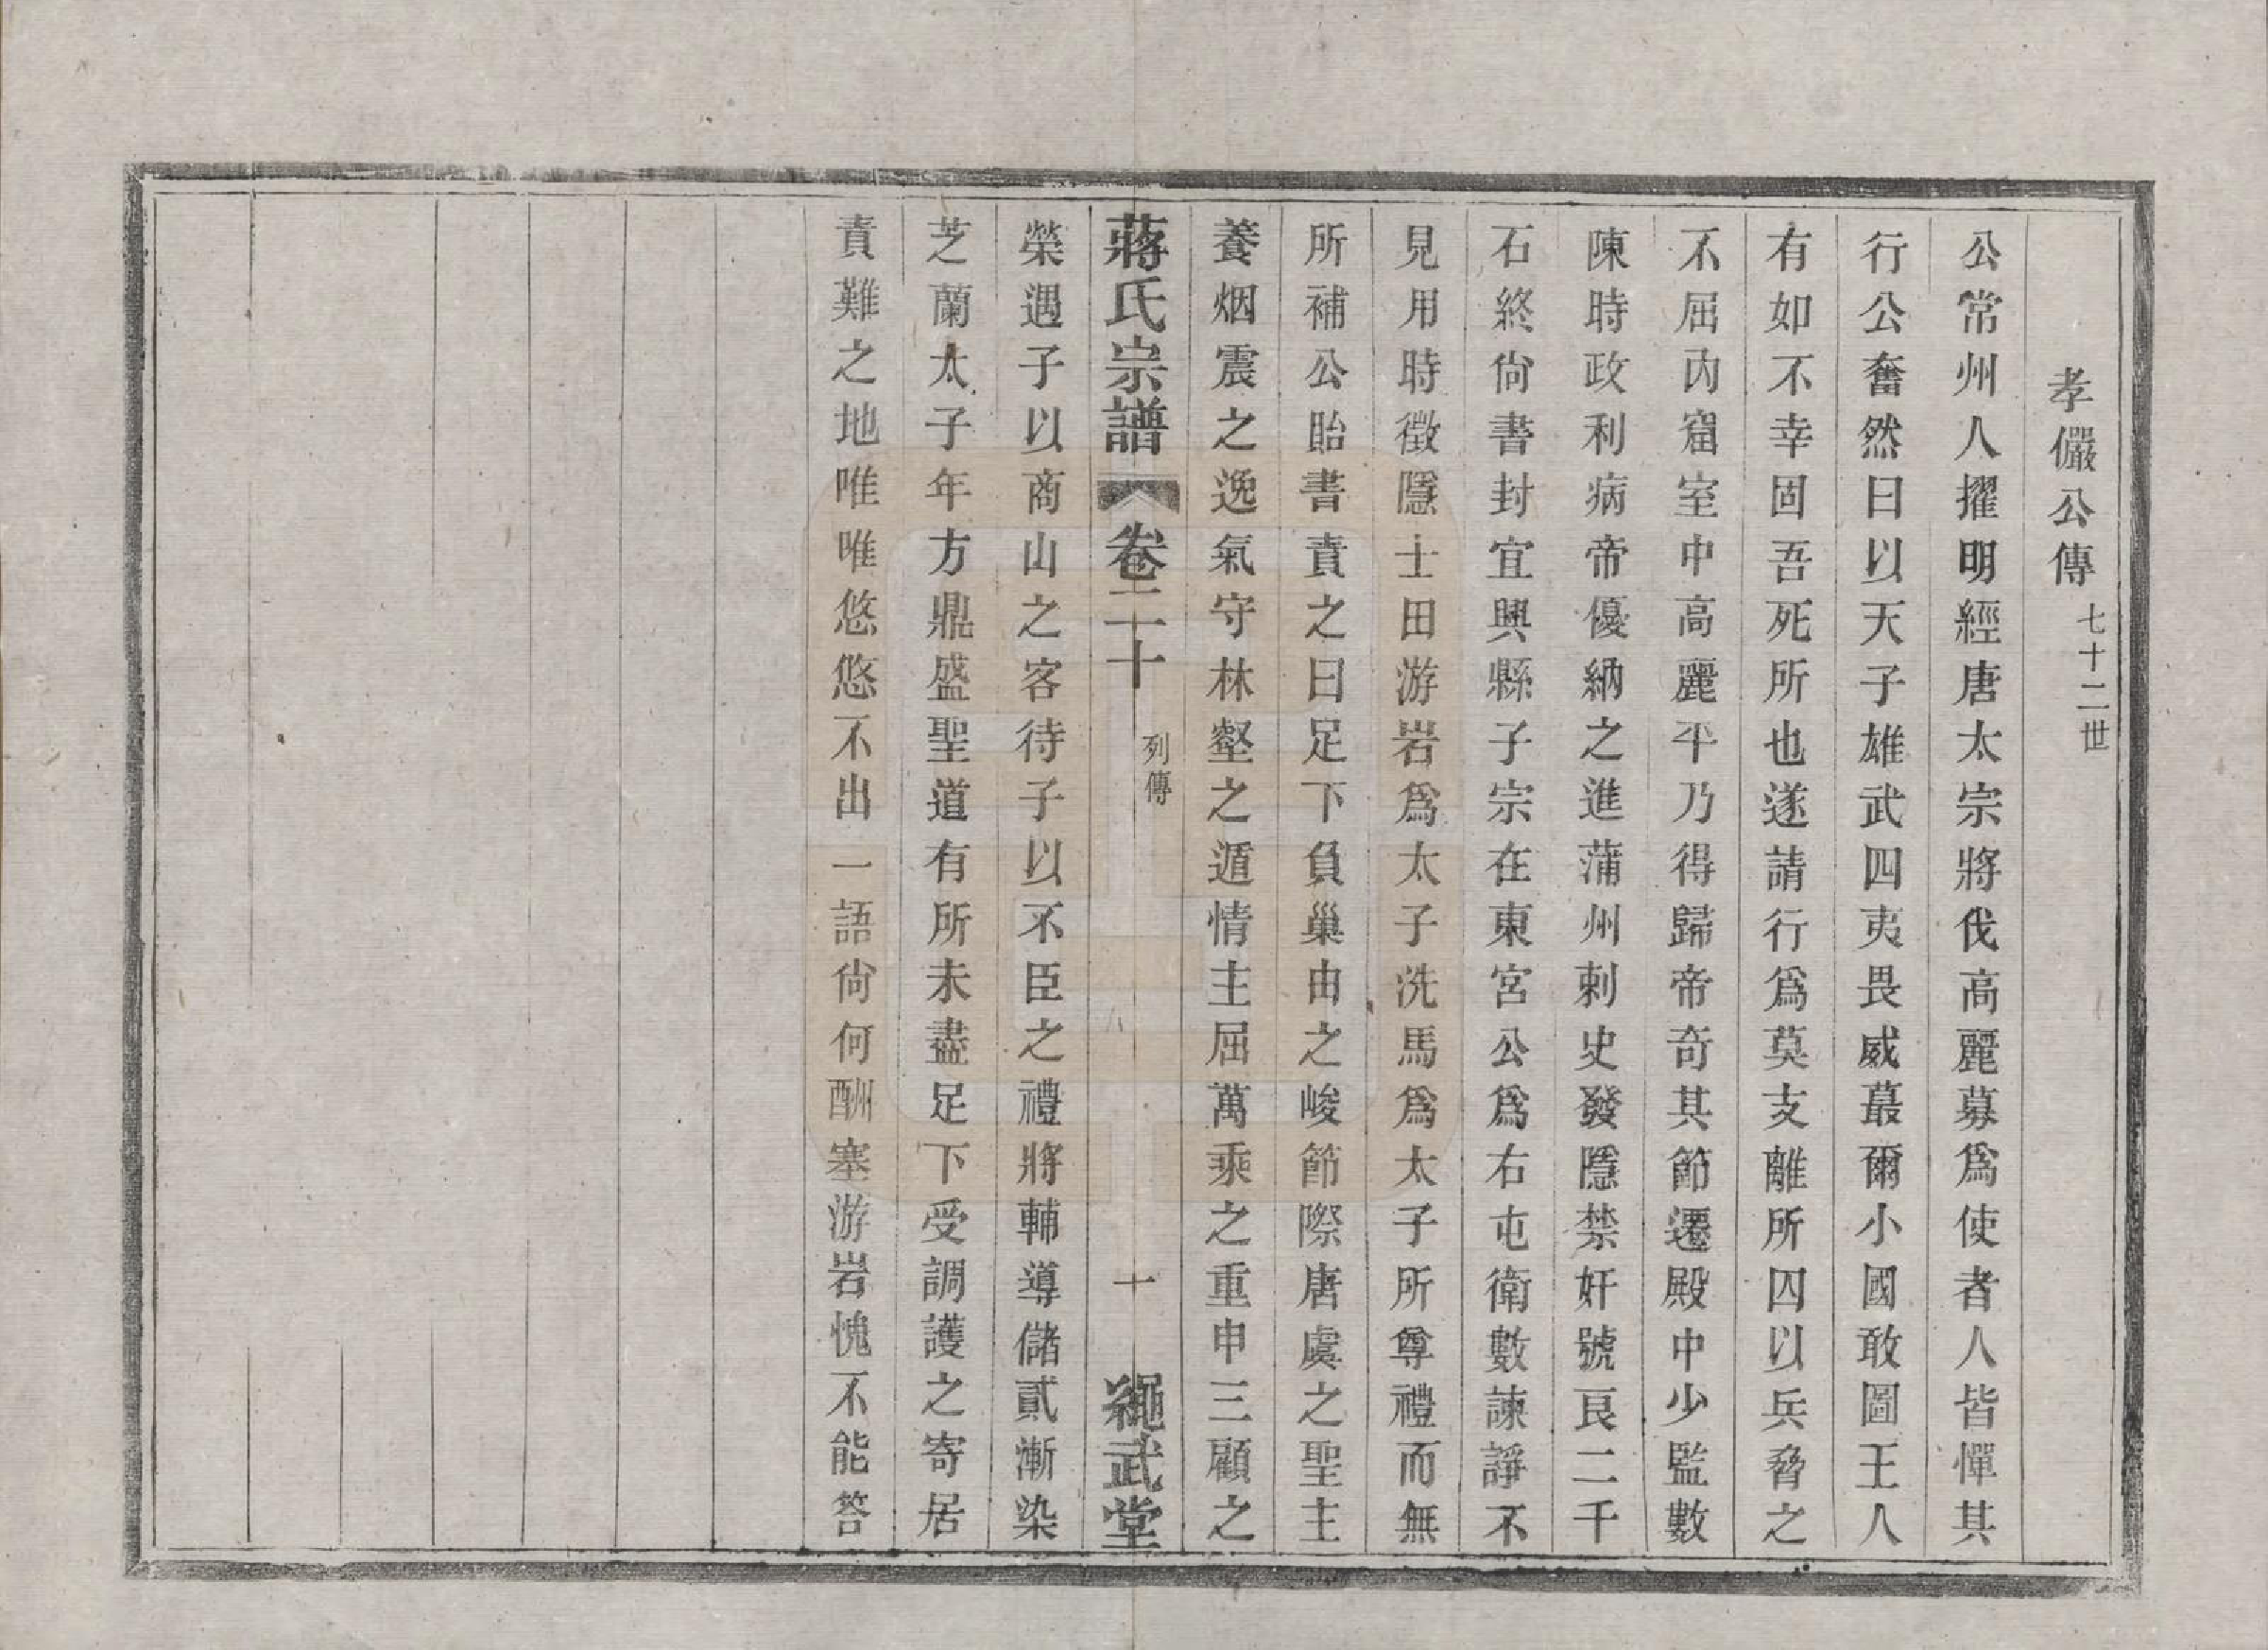 孝儼公傳 七十二世
公常州人擢明經唐太宗將伐高麗募爲使者人皆憚其
行公奮然曰以天子雄武四夷畏威蕞爾小國敢圖王人
有如不幸固吾死所也遂請行爲莫支離所囚以兵脅之
不屈內窟室中高麗平乃得歸帝奇其節遷殿中少監數
陳時政利病帝優納之進蒲州刺史發隱禁奸號良二千
石終尙書封宜興縣子宗在東宮公爲右屯衛數諫諍不
見用時徵隱士田游岩爲太子洗馬爲太子所尊禮而無
所補公貽書責之曰足下負巢由之峻節際唐虞之聖主
養烟震之逸氣守林壑之遁情主屈萬乘之重申三顧之
蔣氏宗譜 卷二十 列傳 十 繩武堂
榮遇子以商山之客待子以不臣之禮將輔導儲貳漸染
芝蘭太子年方鼎盛聖道有所未盡足下受調護之寄居
責難之地唯唯悠悠不出一語尙何酬塞游岩愧不能答